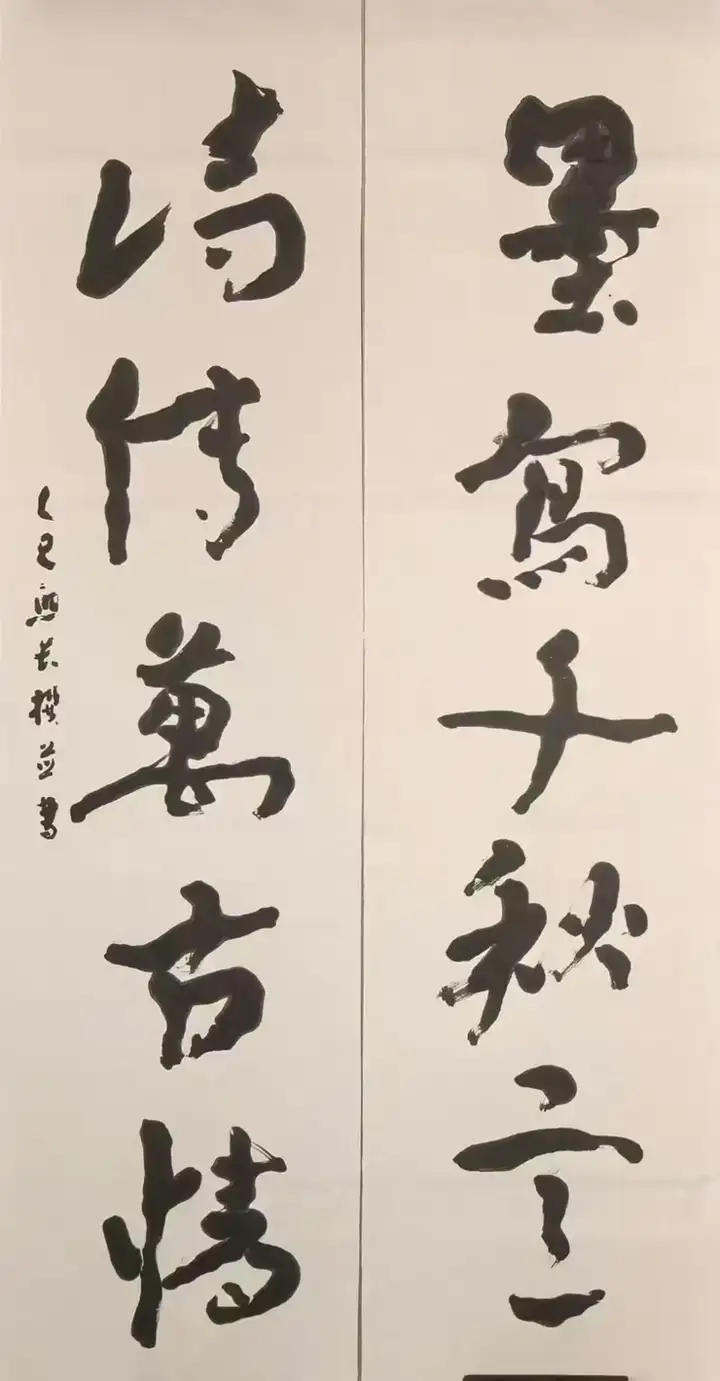 墨寫千秋意
詩傳萬古情
乙巳 長撰並書